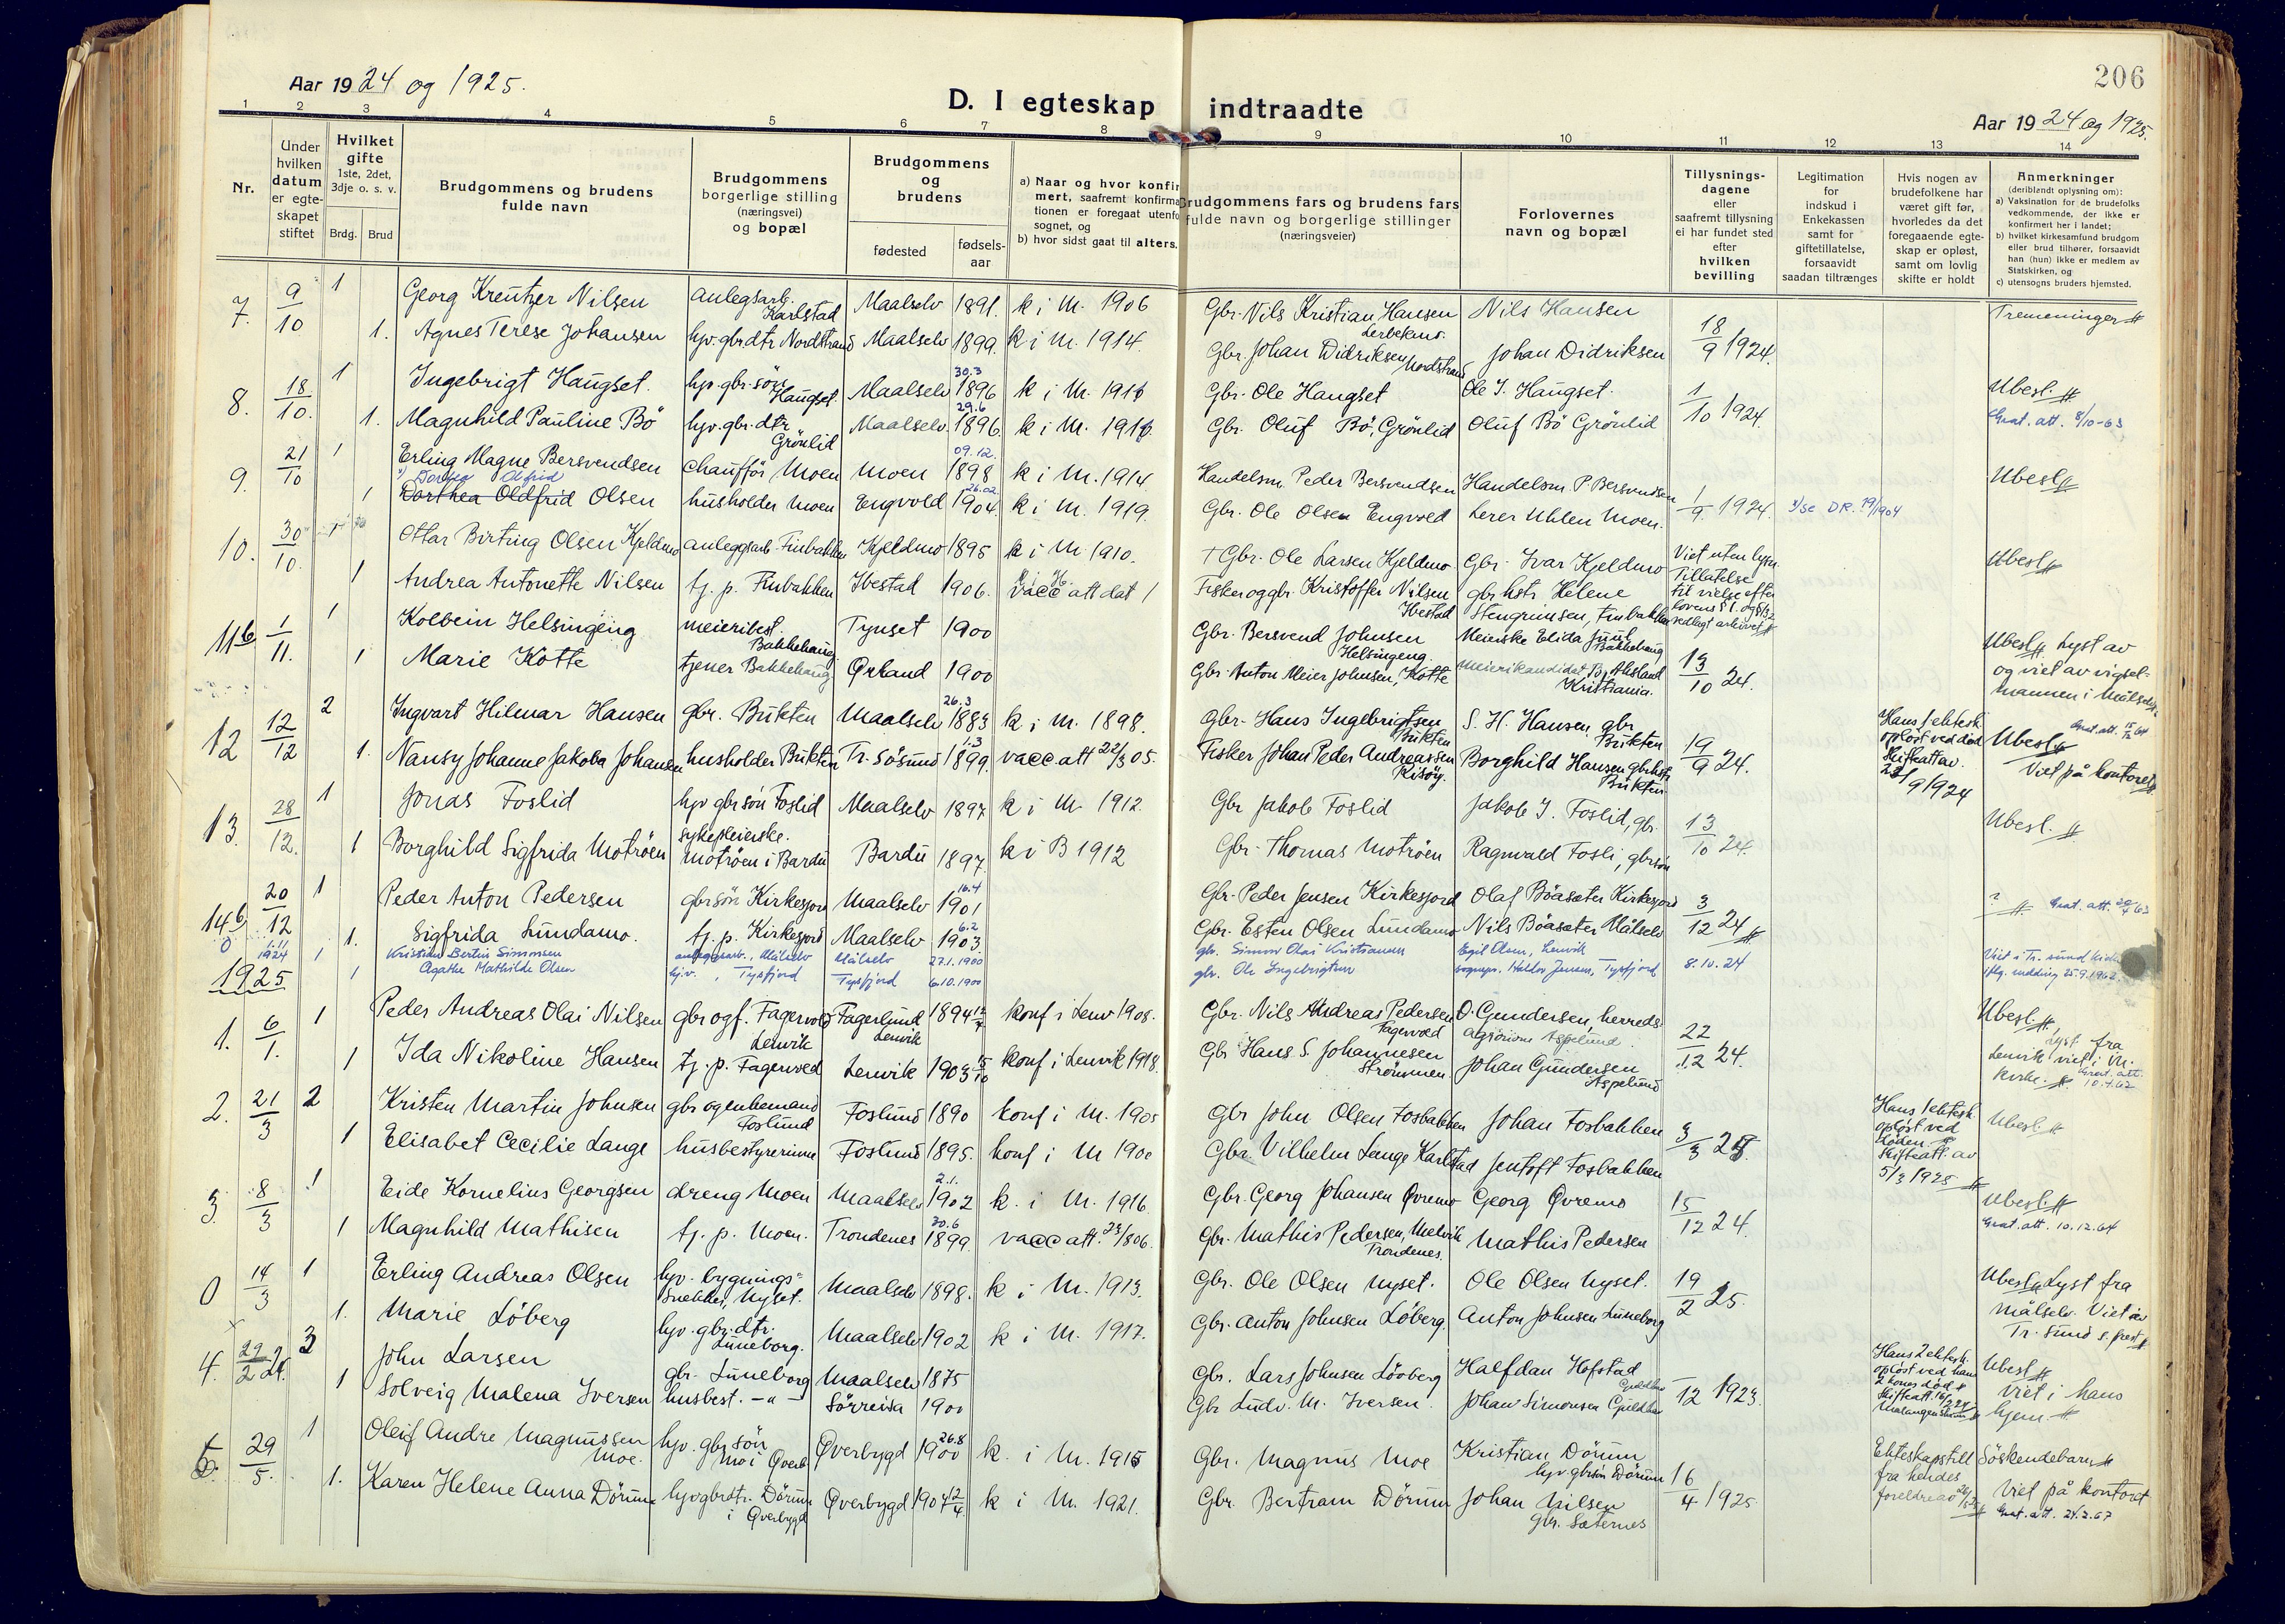 206
Aar 1924 og 1925.
D. I egteskap indtraadte
Aar 1924 og 1925.
1 2 3 4 5 6 7 8 9 10 11 12 13 14
Nr.
Under hvilken datum er egteskapet stiftet
Hvilket gifte 1ste, 2det, 3dje o. s. v.
Brdg. Brud
Brudgommens og brudens fulde navn
Brudgommens borgerlige stilling (næringsvei) og bopæl
Brudgommens og brudens
fødested
fødselsaar
a) Naar og hvor konfirmert, saafremt konfirmationen er foregaat utenfor sognet, og
b) hvor sidst gaat til alters.
Brudgommens fars og brudens fars fulde navn og borgerlige stillinger (næringsveier)
Forlovernes navn og bopæl
Tillysningsdagene eller saafremt tillysning ei har fundet sted efter hvilken bevilling
Legitimation for indskud i Enkekassen samt for giftetillatelse, forsaavidt saadan tiltrænges
Hvis nogen av brudefolkene har været gift før, hvorledes da det foregaaende egteskap er opløst, samt om lovlig skifte er holdt
Anmerkninger
(deriblandt oplysning om):
a) Vaksination for de brudefolks vedkommende, der ikke er konfirmert her i landet;
b) hvilket kirkesamfund brudgom eller brud tilhører, forsaavidt han (hun) ikke er medlem av Statskirken, og
c) utensogns bruders hjemsted.
7. 9/10 1 Georg Kreutzer Nilsen anlegsarb. Karlstad Maalselv 1891. k i M. 1906 Gbr. Nils Kristian Hansen Nils Hansen 18/9 1924. Tremeninger
1. Agnes Terese Johansen hjv. gbr.dtr Nordstrand Maalselv 1899. k i M. 1914. Gbr Johan Didriksen Nordstrand Johan Didriksen
8. 18/10. 1 Ingebrigt Haugset. hjv. gbr. søn Haugset. Maalselv 30.3 1896 k i M. Gbr. Ole Haugset Ole J. Haugset. 1/10 1924. Ubesl.
1. Magnhild Pauline Bö hjv. gbr. dtr Grönlid Maalselv. 29.6 1896. k i M. Gbr. Oluf Bö, Grönlid Oluf Bö Grönlid Grat. att. 8/10-63
9. 21/10 1 Erling Magne Bersvendsen Chauffør Moen Moen 09.12. 1898 k i M. 1914 Handelsm. Peder Bersvendsen Handelsm. P. Bersvendsen 1/9 1924. Ubesl.
1 Dorthea Oldfrid Olsen husholder Moen Engvold 26.02 1904. k i M. 1919. Gbr. Ole Olsen Engvold Lerer Uhlen Moen. x/se DR. 19/1904
10. 30/10. Ottar Birting Olsen Kjeldmo anleggsarb Finbakken Kjeldmo 1895 k i M 1910. † Gbr. Ole Larsen Kjeldmo Gbr. Ivar Kjeldmo Viet uten lysn. Tillatelse til vielse efter lovens Ubesl.
1 Andrea Antonette Nilsen tj. p. Finbakken Ibestad 1906. vacc att dat Fisker og gbr. Kristoffer Nilsen Ibestad gbr hstr Helene Stengrimsen, Finbakken
11 b 1/11. 1 Kolbein Helsingeng meieribest. Bakkehaug Tynset 1900 Gbr. Bersvend Johnsen Helsingeng. Meierske Elida Juul Bakkehaug 13/10 24. Ubesl. Lyst av og viet av vigselmannen i Målselv.
1 Marie Kotte tjener Bakkehaug Ørland 1900 Gbr. Anton Meier Johnsen, Kotte Meierikandidat Kristiania.
12 12/12 2 Ingvart Hilmar Hansen gbr. Bukten Maalselv 26.3 1883 k i M. 1898. Gbr. Hans Ingebrigtsen Bukten S. H. Hansen gbr Bukten 19/9 24. Hans 1 ektesk. opløst ved død Skifteatt av Ubesl. Grat. att. Viet på kontoret
1. Nansy Johanne Jakoba Johansen husholder Bukten Tr. Sösund 1899. vacc. att 22/3 05. Fisker Johan Peder Andreassen Risöy. Borghild Hansen gbrhstr Bukten
13. 28/12. 1 Jonas Foslid hjv gbr søn Foslid Maalselv 1897 k i M. 1912. Gbr Jakob Foslid Jakob J. Foslid, gbr. 13/10 24. Ubesl.
1 Borghild Sigfrida Moträen sykepleierske. Motröen i Bardu Bardu 1897. k i B 1912 Gbr. Thomas Motröen Ragnvald Fosli, gbrsøn
14 b 20/12 1 Peder Anton Pedersen gbrsøn Kirkesjord Maalselv 16.4 1901 Gbr. Peder Jensen Kirkesjord Olaf Böasæter Kirkesjord 3/12 24 Grat. att.
1. Sigfrida Lundamo. tj. p. Kirkesjord Maalselv 6.2 1903. Gbr. Esten Olsen Lundamo Nils Böasæter Målselv
0 1924 1 Kristian Bertin Simonsen anleggsarb., Målselv Målselv 27.1.1900 gbr. Simon Olai Kristiansen Egil Olsen, Lenvik 8.10.24 Viet i Tr. sund kirke iflg. melding 25.9.1962
1 Agathe Mathilde Olsen hjv., Tysfjord Tysfjord 6.10.1900 gbr. Ole Ingebrigtsen
1925
1. 6/1. 1 Peder Andreas Olai Nilsen gbr og f. Fagervold Lenvik Fagerlund Lenvik 1894 konf i Lenv 1908. Gbr. Nils Andreas Pedersen Fagervold O. Gundersen, herreds- 22/12 24. Ubesl. Lyst fra Lenvik viet i M. kirke. Grat. att. 10.7.62
1 Ida Nikoline Hansen tj. p. Fagervold Lenvik 1903 15/10 konf i Lenvik 1918. Gbr Hans S. Johannesen Strömmen. Johan Gundersen Aspelund
2. 21/3 2 Kristen Martin Johnsen gbr og enkemand Foslund Foslund 1890 konf i M. 1905 Gbr John Olsen Fosbakken Johan Fosbakken Hans 1 ektesk. opløst ved døden. Skifteatt. av 5/3 1925 Ubesl.
1 Elisabet Cecilie Lange husbestyrerinne Foslund 1895. konf i M Gbr. Vilhelm Lange Karlstad Jentoft Fosbakken
3. 8/3 1 Eide Kornelius Georgsen dreng Moen Maalselv 2.1. 1902 k. i M. 1916. Gbr. Georg Johansen Øvremo Georg Øvremo 15/12 24. Ubesl. Grat. att. 10.12.64
1 Magnhild Mathisen tj. p. Moen. Trondenes 30.6 1899. vacc att. Gbr. Mathis Pedersen, Trondenes. Mathis Pedersen
0 14/3 1 Erling Andreas Olsen hjv. bygningssnekker, Nyset. Maalselv 1898. k i M. 1913. Gbr. Ole Olsen Nyset. Ole Olsen Nyset. 19/2 25. Ubesl. Lyst fra Målselv. Viet av Tr. Sund s. prest
1. Marie Löberg hjv. gbr. dtr. Luneborg. Maalselv 1902 k i M. 1917. Gbr. Anton Johnsen Löberg. Anton Johnsen Luneborg
4. 29/2 24. 3 John Larsen gbr. Luneborg Maalselv 1875 Gbr. Lars Johnsen Lövberg Halfdan Hofstad 12 1923. Hans 2 ektesk. opløst ved hans 2 kones død Ubesl. Viet i hans hjem.
1 Solveig Malena Iversen husbest. -"- Sörreisa 1900 Gbr Ludv. M. Iversen. Johan Simonsen
5. 29/5. 1 Oleif Andre Magnussen Moe. hjv. gbr søn Mo i Øverb Øverbygd 26.8 1900 k. i M. 1915 Gbr. Magnus Moe Kristian Dörum hjv gbrsøn Dörum 16/4 1925. Ekteskapstill fra hendes foreldre Söskendebarn Viet på kontoret Grat. att. 24.2.67
1. Karen Helene Anna Dörum hjv gbrdtr. Dörum i Øverbygd Øverbygd 1904 k i M. 1921. Gbr. Bertram Dörum Johan Nilsen Gbr. Sæternes